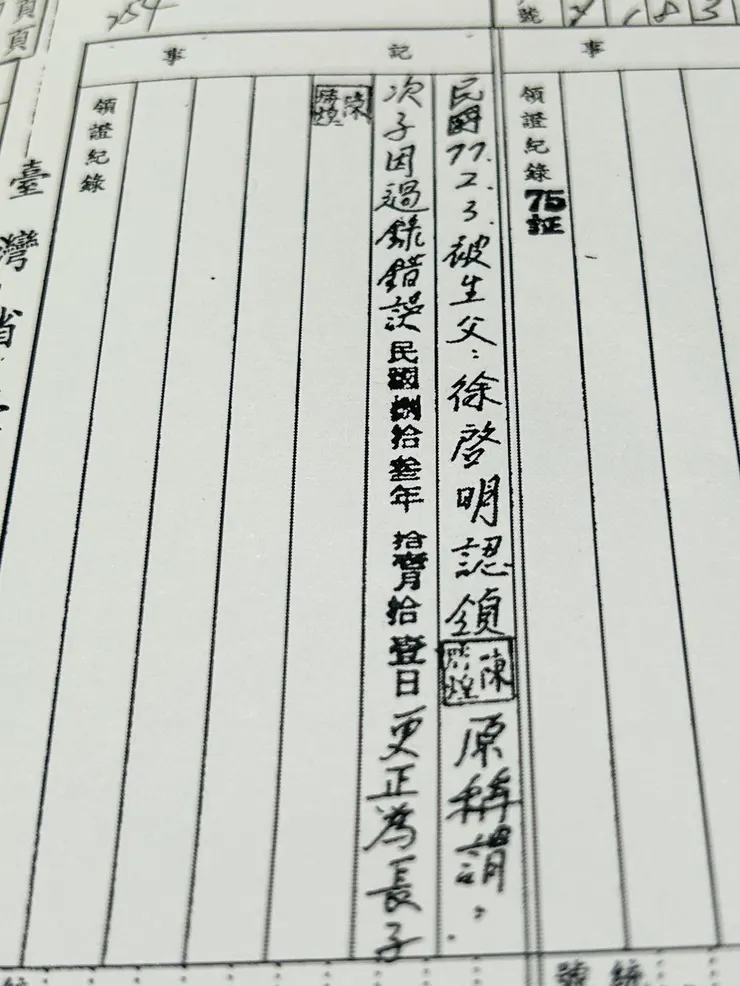 254
號 2 1 8 3
事
記
事
領證紀錄 75証
民國77.2.3.被生父:徐啓明認領 陳煌 原稱謂,
次子因過錄錯誤民國捌拾叁年 拾壹月拾壹日更正為長子
陳煌
領證紀錄
臺灣省
頁
頁
統號